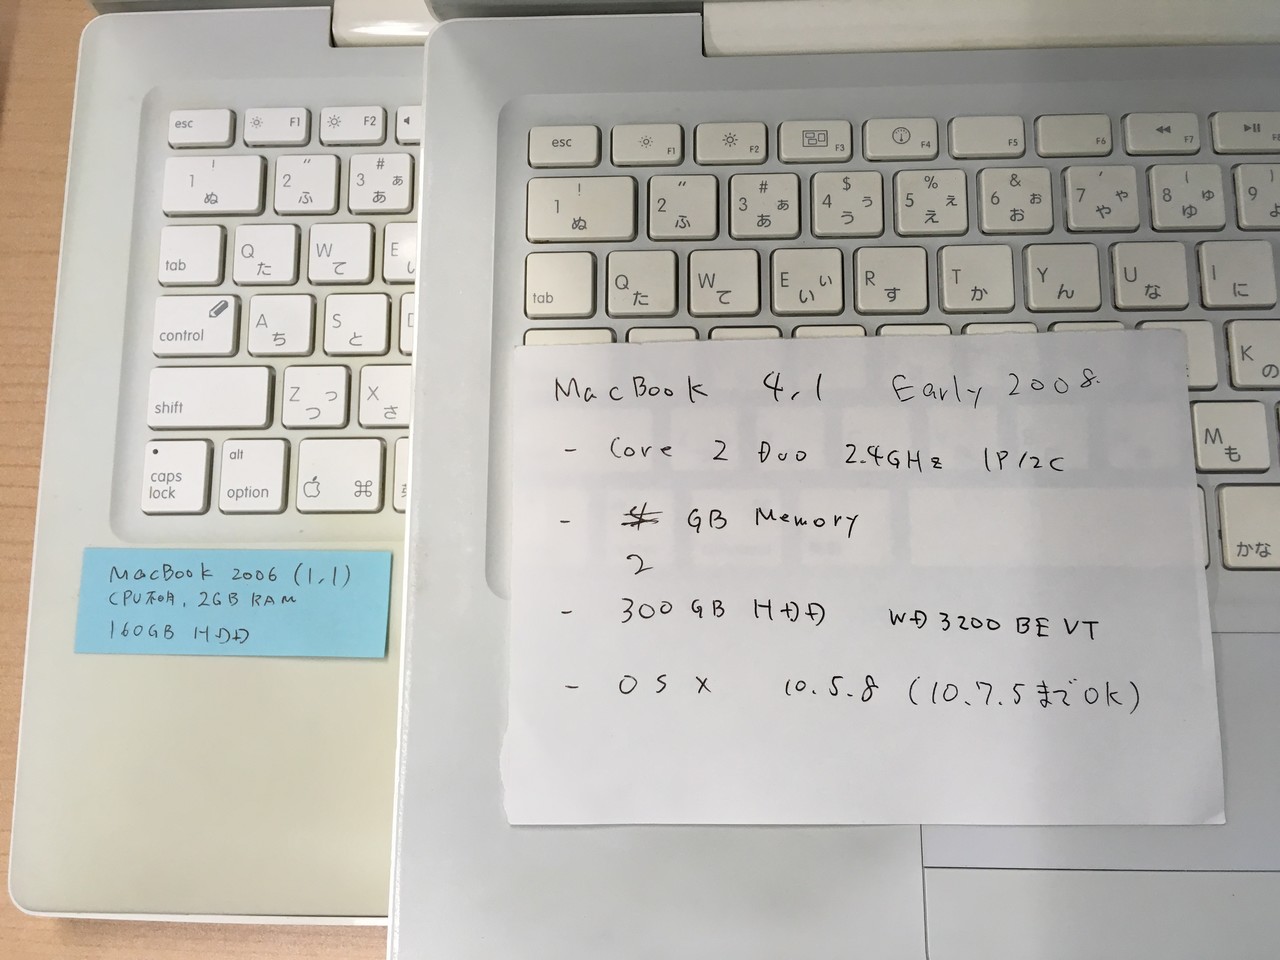 esc F1 F2
! 1 ぬ " 2 ふ # 3 ぁ あ
tab Q た W て E
control A ち S と
shift Z っ つ X さ
caps lock alt option ⌘
MacBook 2006 (1,1)
CPU不明, 2GB RAM
160GB HDD
esc F1 F2 F3 F4 F5 F6 F7
! 1 ぬ " 2 ふ # 3 ぁ あ $ 4 ぅ う % 5 ぇ え & 6 ぉ お ' 7 ゃ や ( 8 ゅ ゆ ) 9
tab Q た W て E ぃ い R す T か Y ん U な I に
K の
M も
かな
MacBook 4,1 Early 2008.
- Core 2 Duo 2.4GHz 1P/2C
- 4 GB Memory
2
- 300 GB HDD WD3200BEVT
- OS X 10.5.8 (10.7.5までOK)